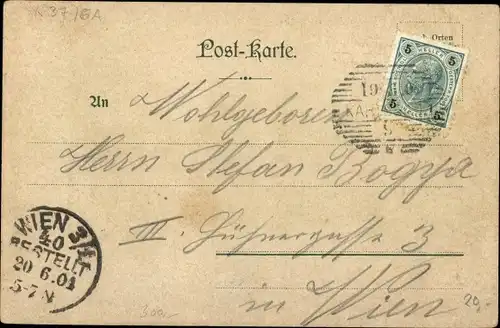 K 37/6A
Orten
Post-Karte.
5 HELLER 5
5 HELLER 5
An Wohlgeboren
Herrn Stefan Bogya
III. Hühnergasse 3
in Wien
WIEN 3/1
40
BESTELLT
20 6.01
5-7 N
20,-